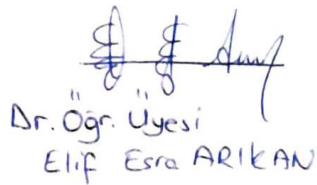 Dr. Öğr. Üyesi
Elif Esra ARIKAN